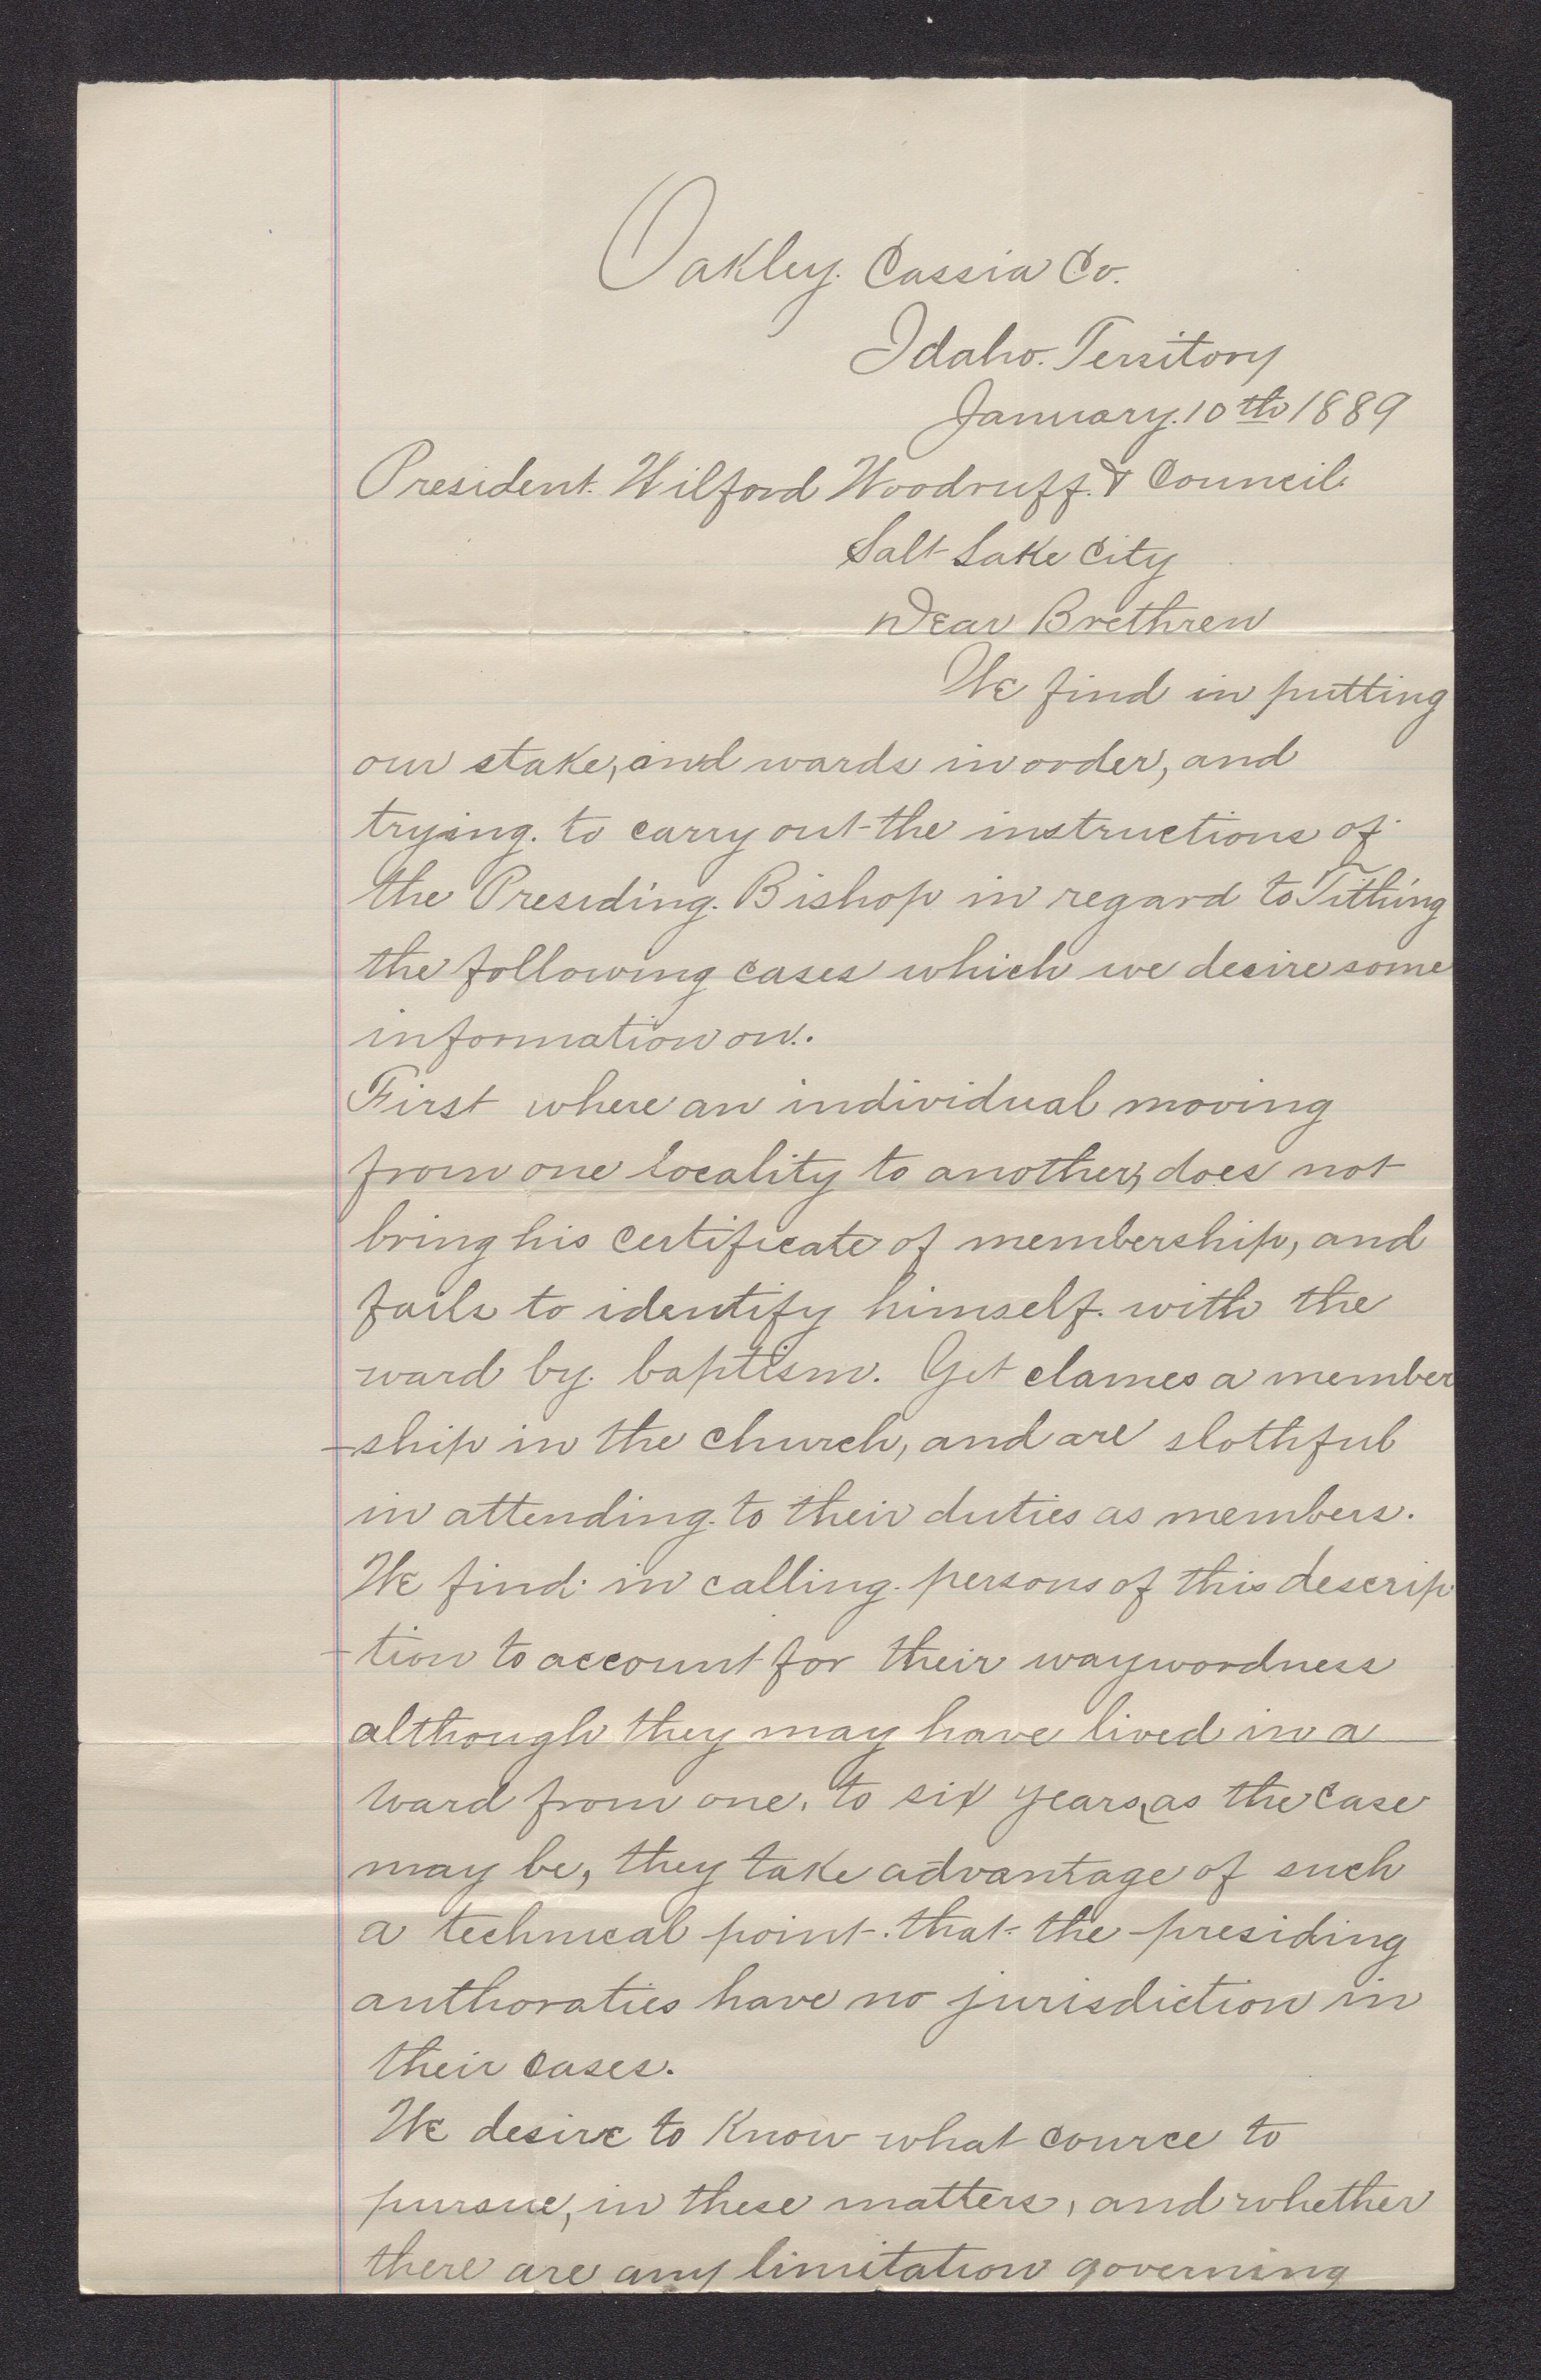 Oakley. Cassia Co.
Idaho. Territory
January. 10th 1889
President. Wilford Woodruff. & Council.
Salt Lake City
Dear Brethren
We find in putting
our stake, and wards in order, and
trying. to carry out the instructions of
the Presiding. Bishop in regard to Tithing
the following cases which we desire some
information on.
First where an individual moving
from one locality to another, does not
bring his certificate of membership, and
fails to identify himself. with the
ward by. baptism. Yet clames a member
-ship in the church, and are slothful
in attending. to their duties as members.
We find. in calling. persons of this descrip
-tion to account for their waywordness
although they may have lived in a
ward from one. to six years, as the case
may be, they take advantage of such
a technical point. that the presiding
authoraties have no jurisdiction in
their cases.
We desire to Know what cource to
pursue, in these matters, and whether
there are any limitation governing